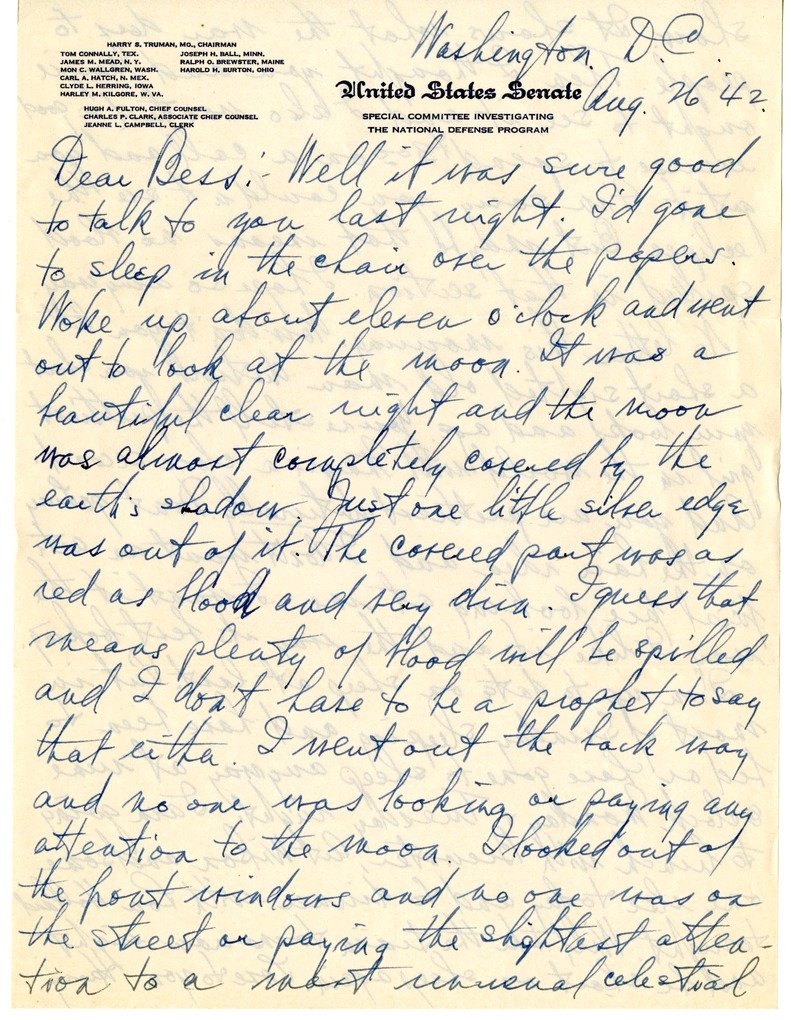 HARRY S. TRUMAN, MO., CHAIRMAN
TOM CONNALLY, TEX.
JAMES M. MEAD, N. Y.
MON C. WALLGREN, WASH.
CARL A. HATCH, N. MEX.
CLYDE L. HERRING, IOWA
HARLEY M. KILGORE, W. VA.
JOSEPH H. BALL, MINN.
RALPH O. BREWSTER, MAINE
HAROLD H. BURTON, OHIO
HUGH A. FULTON, CHIEF COUNSEL
CHARLES P. CLARK, ASSOCIATE CHIEF COUNSEL
JEANNE L. CAMPBELL, CLERK
Washington, D.C.
United States Senate
SPECIAL COMMITTEE INVESTIGATING
THE NATIONAL DEFENSE PROGRAM
Aug. 26 '42.
Dear Bess:- Well it was sure good
to talk to you last night. I'd gone
to sleep in the chair over the papers.
Woke up about eleven o'clock and went
out to look at the moon. It was a
beautiful clear night and the moon
was almost completely covered by the
earth's shadow. Just one little silver edge
was out of it. The covered part was as
red as blood and very dim. I guess that
means plenty of blood will be spilled
and I don't have to be a prophet to say
that either. I went out the back way
and no one was looking or paying any
attention to the moon. I looked out of
the front windows and no one was on
the street or paying the slightest atten-
tion to a most unusual celestial